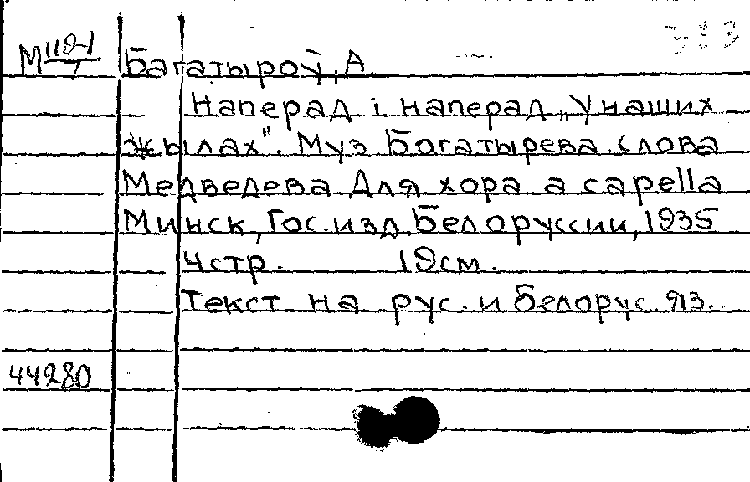 313
М 119-1/1
Багатыроў, А
Наперад і наперад „У наших
жылах". Муз Богатырева слова
Медведева Для хора а capella
Минск, Гос. изд Белоруссии, 1935
4стр. 19см.
Текст на рус. и белорус. яз.
44280